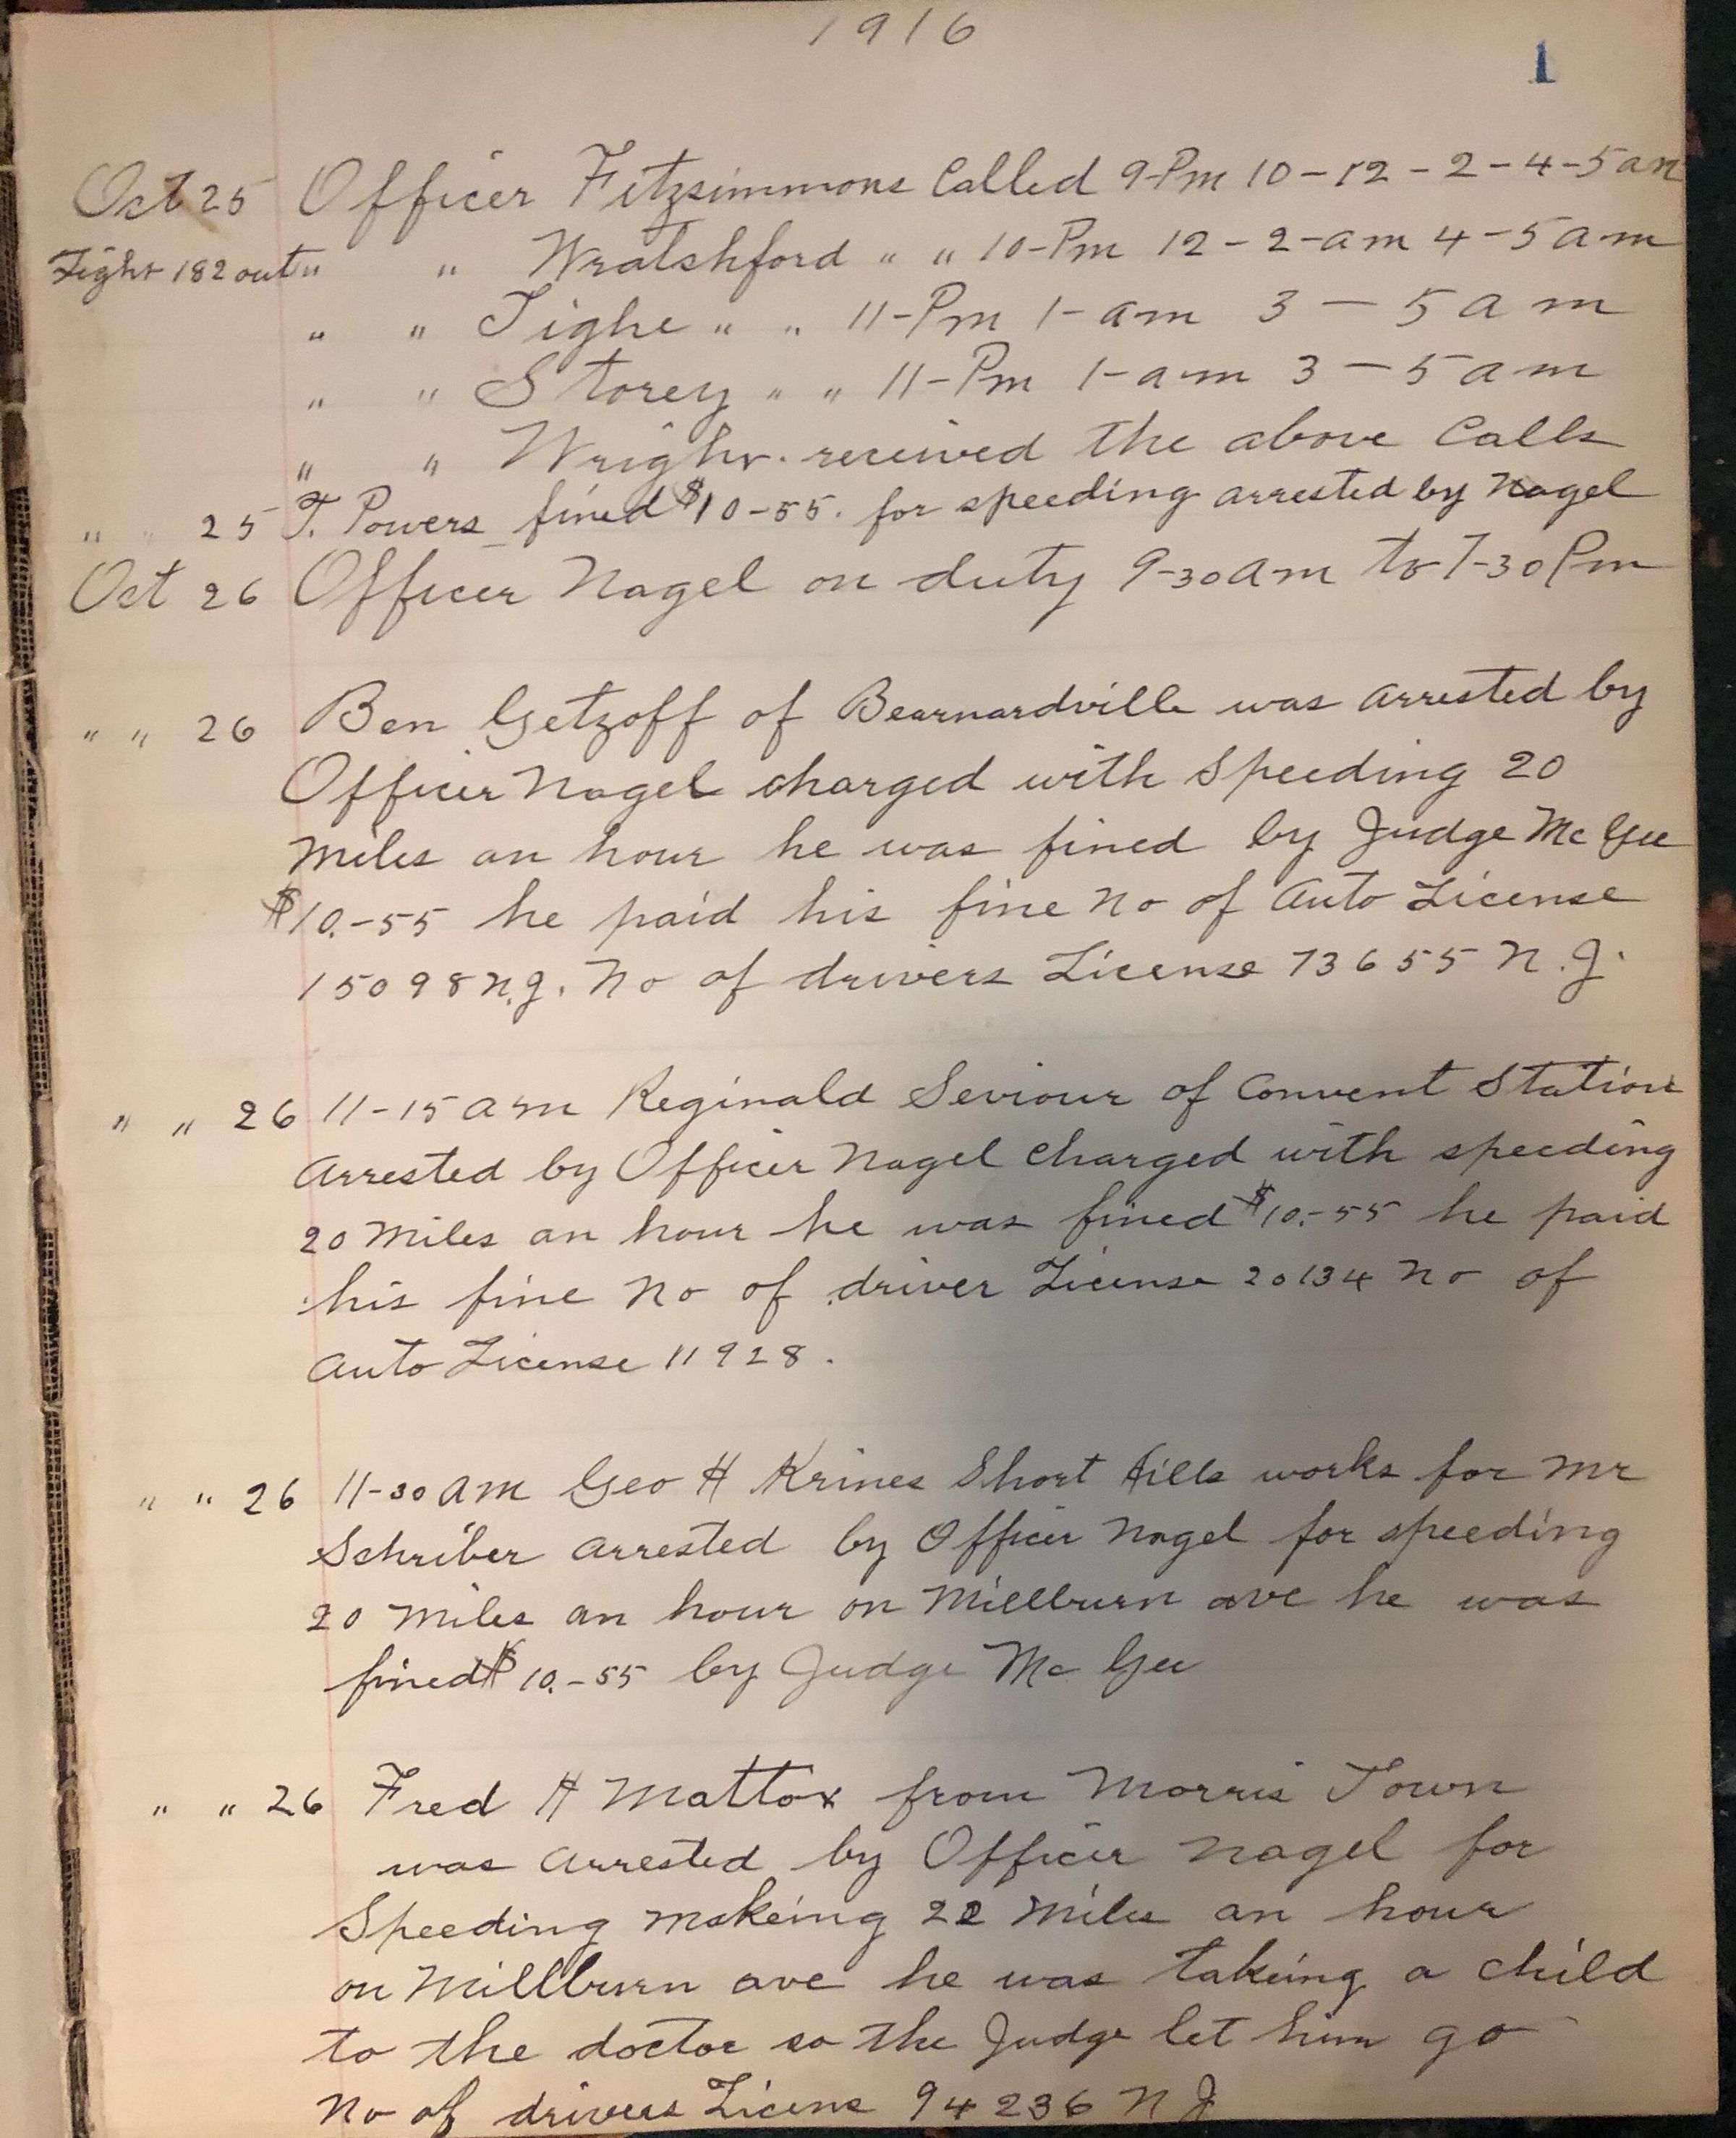 1916
1
Oct 25 Officer Fitzsimmons Called 9-Pm 10-12-2-4-5 am
Light 182 out " " Wratshford " " 10-Pm 12-2-am 4-5 am
" " Tighe " " 11-Pm 1-am 3-5 am
" " Storey " " 11-Pm 1-am 3-5 am
" " Wright. received the above Calls
" " 25 T. Powers fined $10-55. for speeding arrested by Nagel
Oct 26 Officer Nagel on duty 9-30 am to 7-30 Pm
" " 26 Ben Getzoff of Bearnardville was arrested by
Officer Nagel charged with Speeding 20
miles an hour he was fined by Judge Mc Gee
$10.-55 he paid his fine no of Auto License
15098 N.J. No of drivers License 73655 N.J.
" " 26 11-15 am Reginald Seviour of Convent Station
Arrested by Officer Nagel Charged with speeding
20 miles an hour he was fined $10.-55 he paid
his fine No of driver License 20134 No of
Auto License 11928.
" " 26 11-30 am Geo H Krines Short Hills works for Mr
Schriber arrested by Officer Nagel for speeding
20 miles an hour on Millburn ave he was
fined $10.-55 by Judge Mc Gee
" " 26 Fred H Mattox from Morris Town
was Arrested by Officer Nagel for
Speeding makeing 22 miles an hour
on Millburn ave he was takeing a child
to the doctor so the Judge let him go
No of drivers Licens 94236 N J